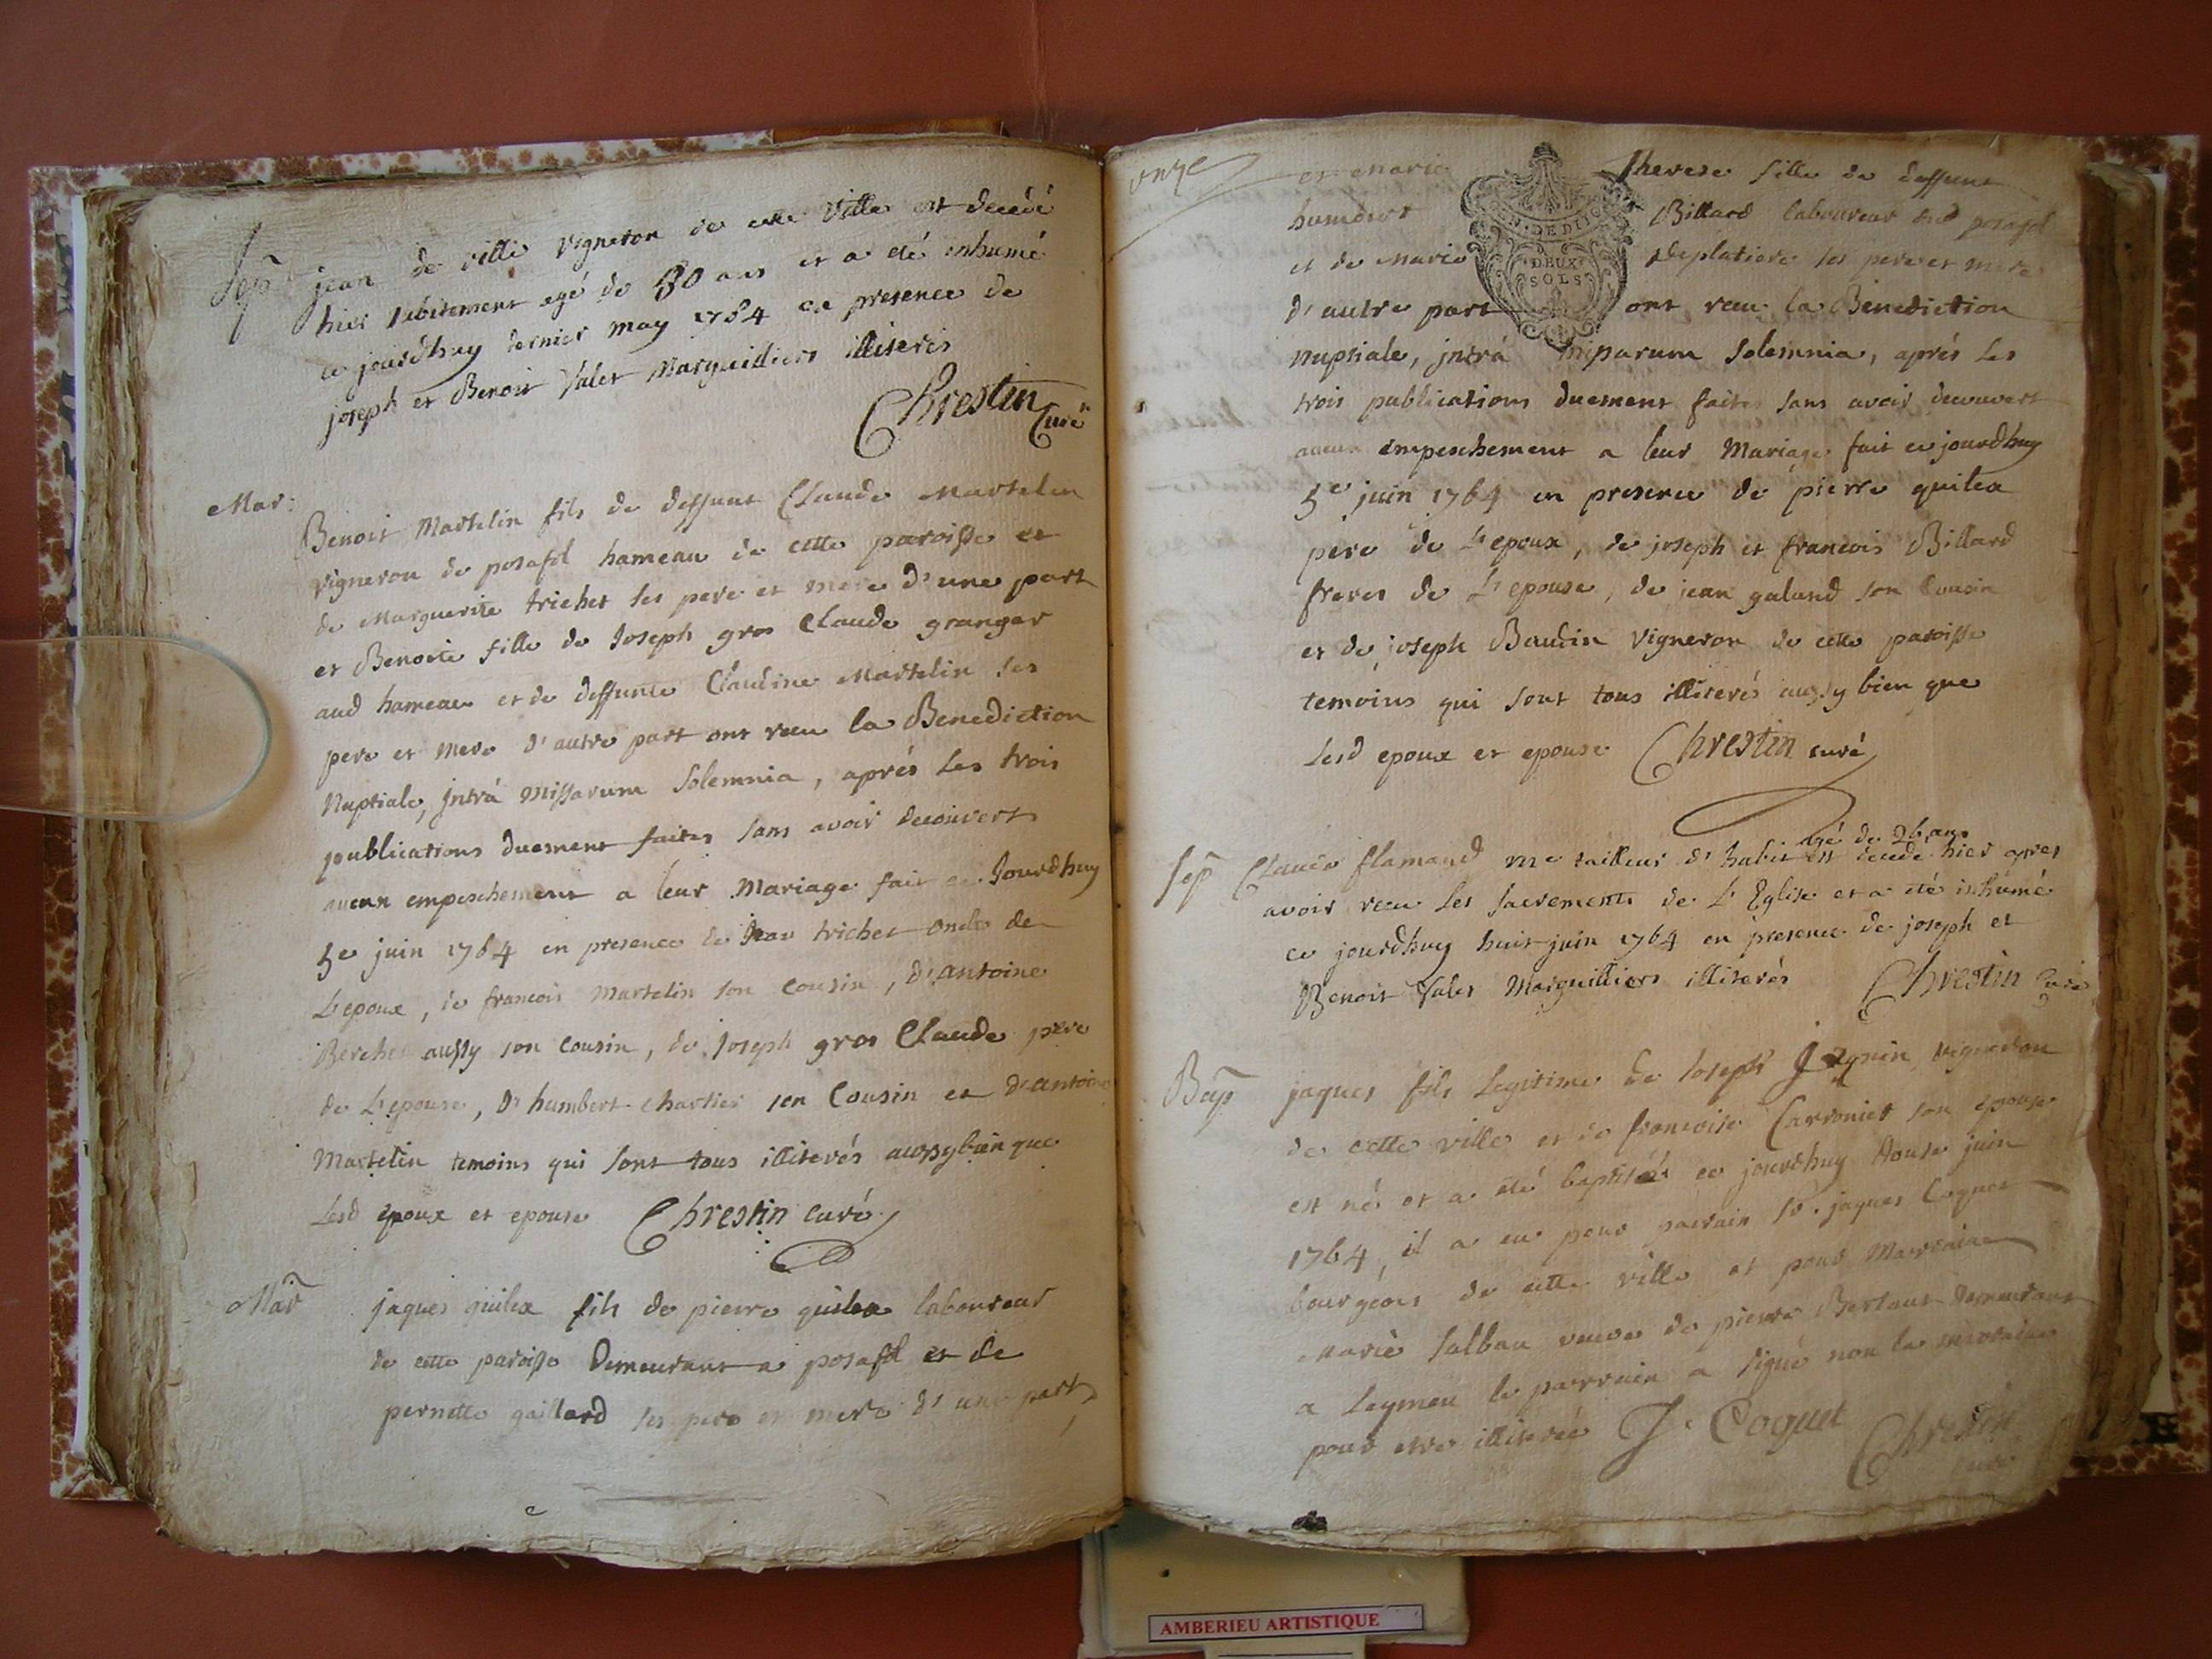 Sep jean de ville vigneron de cette ville est decedé
hier subitement agé de 80 ans et a eté inhumé
ce jourdhuy dernier may 1764 en presence de
joseph et Benoit Valet Marguilliers illiterés
Chrestin Curé
Mar: Benoit Martelin fils de deffunt Claude Martelin
vigneron de posafol hameau de cette paroisse et
de Marguerite trichet ses pere et mere d'une part
et Benoite fille de Joseph gros Claude granger
aud hameau et de deffunte Claudine Martelin ses
pere et mere d'autre part ont receu la Benediction
Nuptiale, jntrá missarum solemnia, aprés les trois
publications duement faites sans avoir decouvert
aucun empeschement a leur Mariage fait ce Jourdhuy
5e juin 1764 en presence de Jean trichet oncle de
L'epoux, de francois Martelin son Cousin, d'antoine
Berchet aussy son cousin, de Joseph gros Claude pere
de L'epouse, d'humbert chartier son Cousin et d'antoine
Martelin temoins qui sont tous illiterés aussy bien que
lesd epoux et epouse Chrestin curé
Mar jaques guilex fils de pierre guilex laboureur
de cette paroisse Demeurant a posafol et de
pernette gaillard ses pere et mere d'une part
onze
et Marie Therese fille de deffunt
humbert Billard laboureur aud posafol
et de Marie Deplatiere ses pere et mere
DEUX
SOLS
d'autre part ont receu la Benediction
nuptiale, jntrá missarum solemnia, aprés les
trois publications duement faites sans avoir decouvert
aucun empeschement a leur Mariage fait ce jourdhuy
5e juin 1764 en presence de pierre guilex
pere de L'epoux, de joseph et francois Billard
freres de L'epouse, de jean galand son Cousin
et de joseph Baudin vigneron de cette paroisse
temoins qui sont tous illiterés aussy bien que
lesd epoux et epouse Chrestin curé
agé de 26 ans
Sep Claude flamand me tailleur d'habit est decedé hier apres
avoir receu les sacrements de L'Eglise et a eté inhumé
ce jourdhuy huit juin 1764 en presence de joseph et
Benoit Valet Marguilliers illiterés Chrestin Curé
Bap jaques fils legitime de Joseph vigneron
de cette ville et de francoise Carronier son epouse
est né et a eté baptisé ce jourdhuy douse juin
1764, il a eu pour parrain sr. jaques Coquet
bourgeois de cette ville et pour Marraine
Marie veuve de pierre Bertaut demeurant
a Leymen le parrain a signé non la marraine
pour etre illiterée J. Coquet Chrestin
curé
AMBERIEU ARTISTIQUE